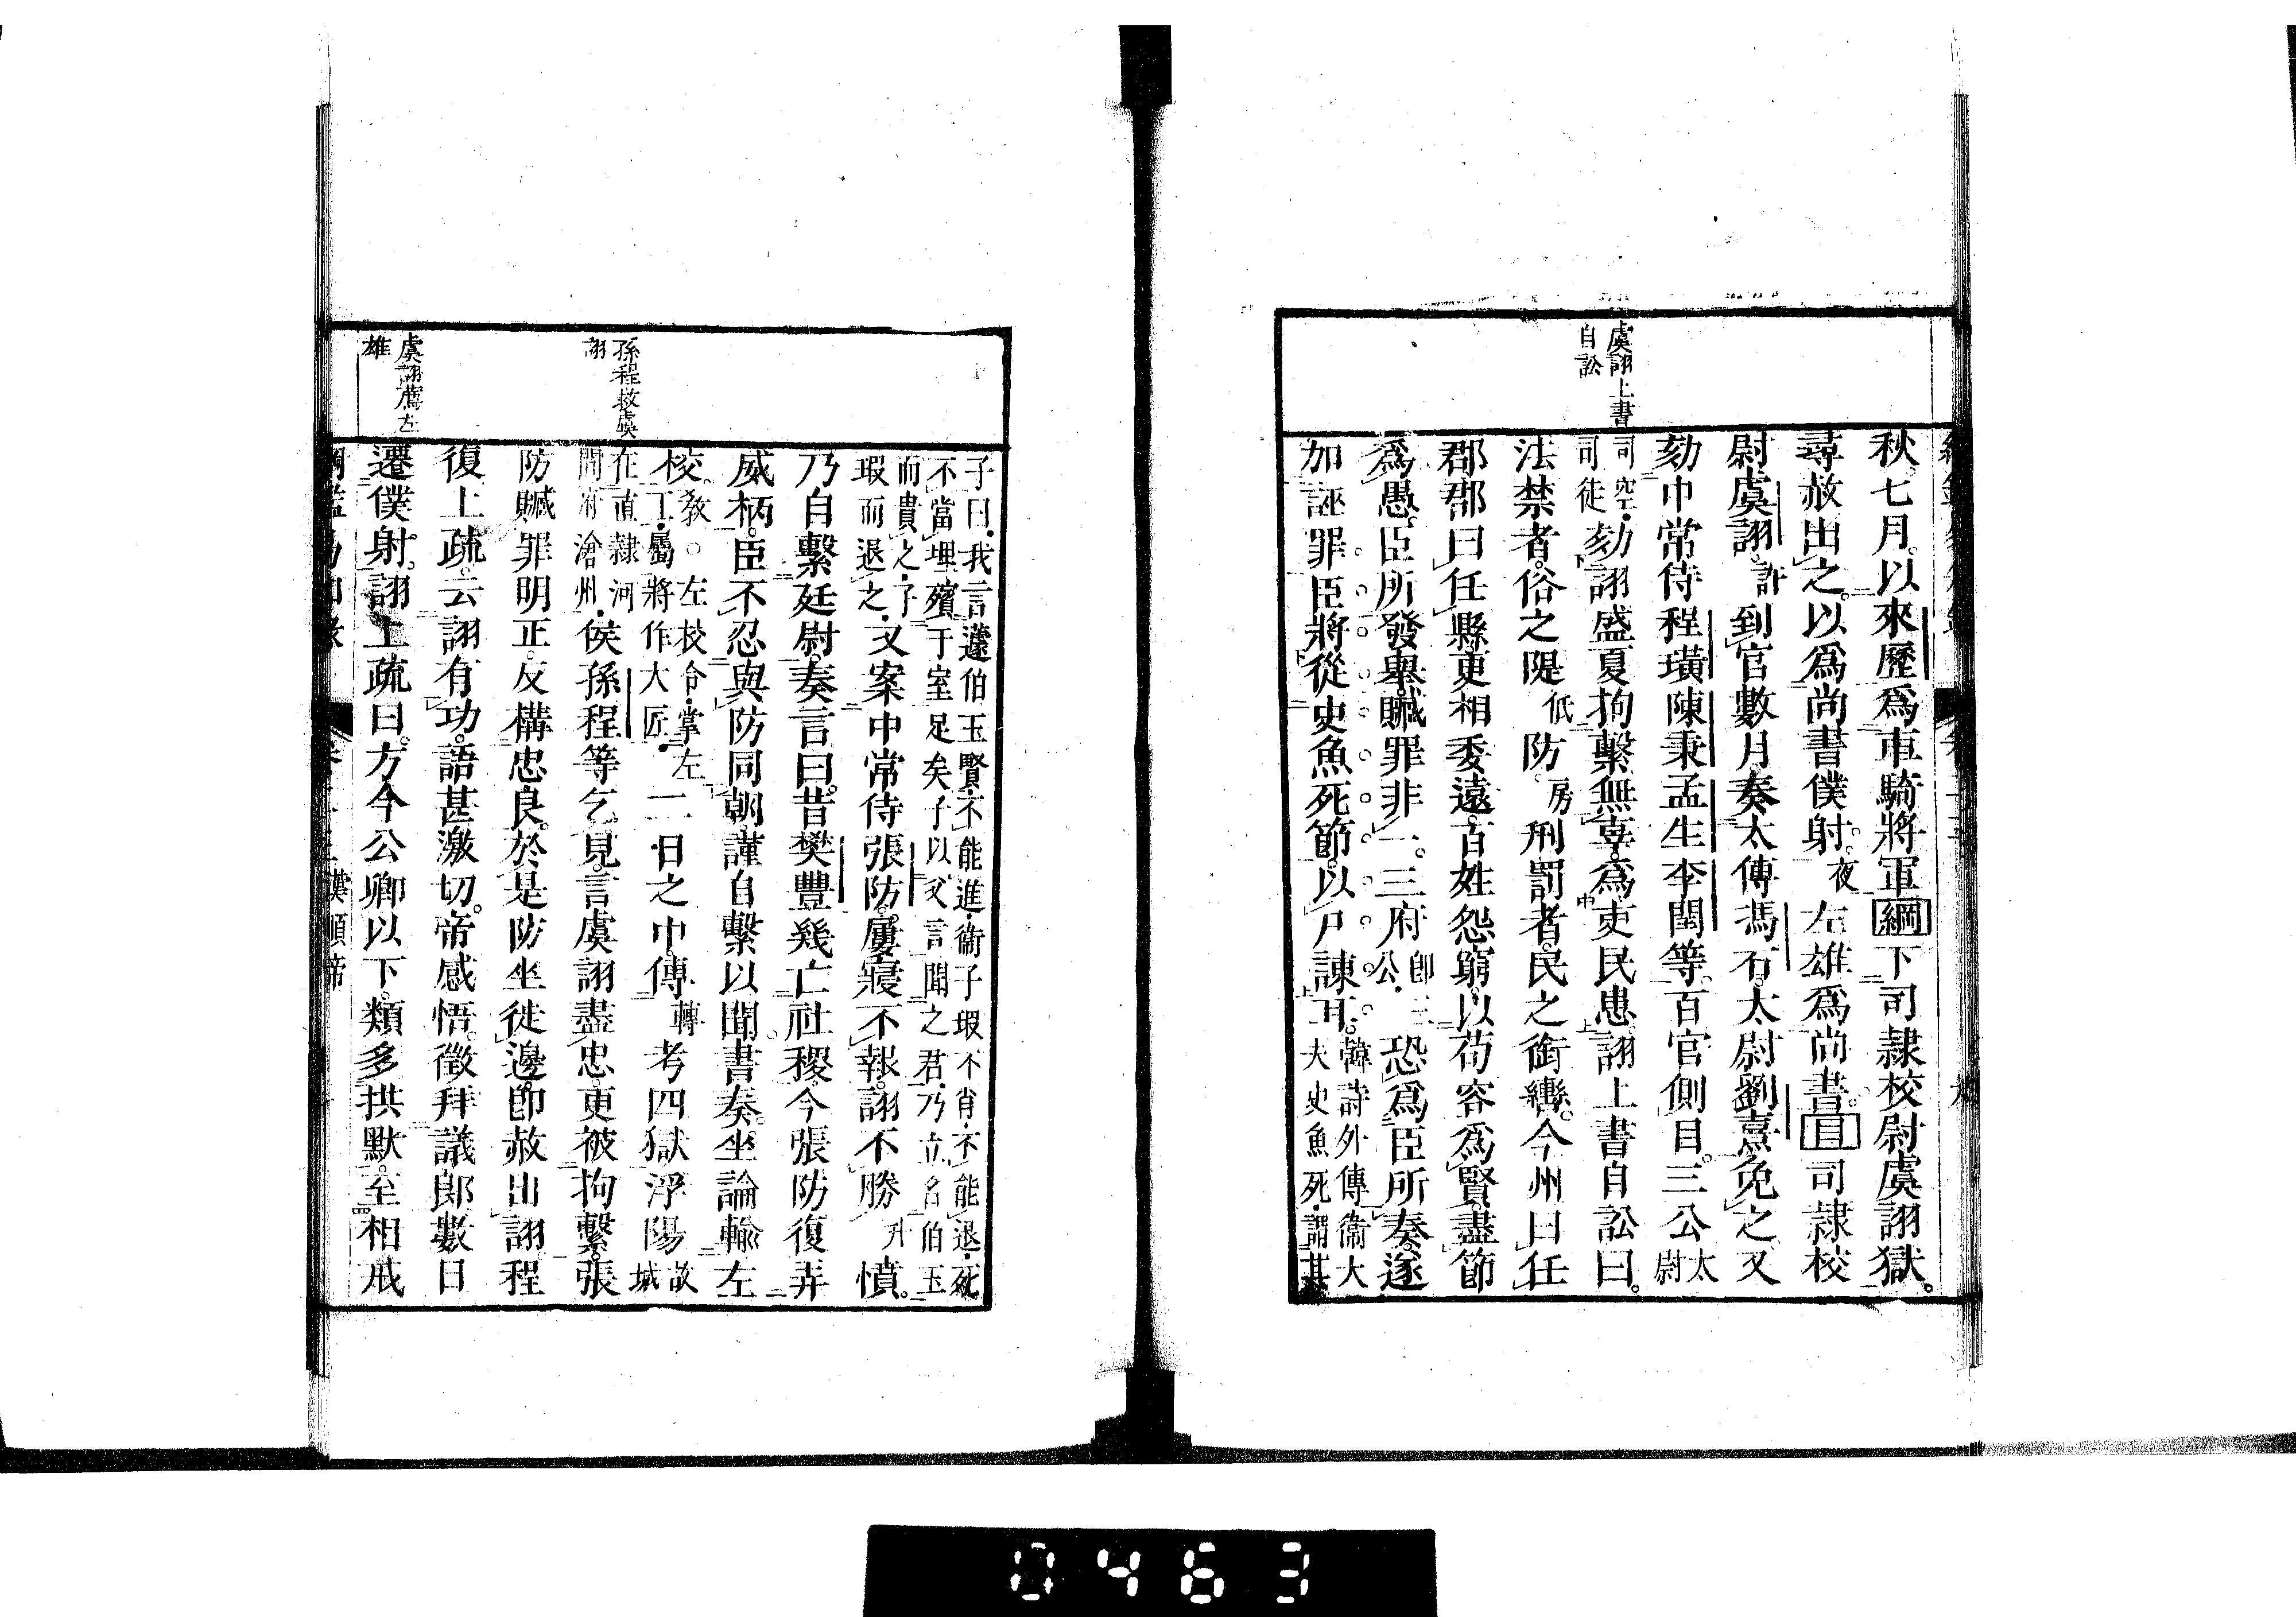 虞詡上書
自訟
秋。七月。以來歷爲車騎將軍綱下司隷校尉虞詡獄。
尋赦出之。以爲尚書僕射。夜左雄爲尚書。目司隷校
尉虞詡。許到官數月。奏太傅馮石。太尉劉熹免之又
劾中常侍程璜陳秉孟生李閏等。百官側目。三公太尉
司空・司徒劾詡盛夏拘繫無辜。爲吏民患。詡上書自訟曰。
法禁者。俗之隄低防房刑罰者。民之銜轡。今州曰任
郡郡曰任縣。更相委遠。百姓怨窮。以苟容爲賢。盡節
爲愚。臣所發舉。贓罪非一。三府卽三公・恐爲臣所奏。遂
加誣罪。臣將從史魚死節。以尸諫耳。韓詩外傳衞大大史魚死・謂其
孫程救虞
詡
虞詡薦左
雄
子曰・我言蘧伯玉賢・不能進・衞子瑕不肖・不能退・死
不當埋殯于室足矣子以父言聞之君・乃立召伯玉
而貴之・子瑕而退之・又案中常侍張防。屢寢不報。詡不勝升憤。
乃自繫廷尉。奏言曰。昔樊豐幾亡社稷。今張防復弄
威柄。臣不忍與防同朝。謹自繫以聞。書奏。坐論輸左
校。敎。左校令・掌左工・屬將作大匠・二日之中。傳轉考四獄浮陽故城
在直隷河間府滄州・侯孫程等乞見。言虞詡盡忠。更被拘繫。張
防贓罪明正。反構忠良。於是防坐徙邊。卽赦出詡。程
復上疏。云詡有功。語甚激切。帝感悟。徵拜議郎。數日
遷僕射。詡上疏曰。方今公卿以下。類多拱默。至相戒
漢順帝
0463